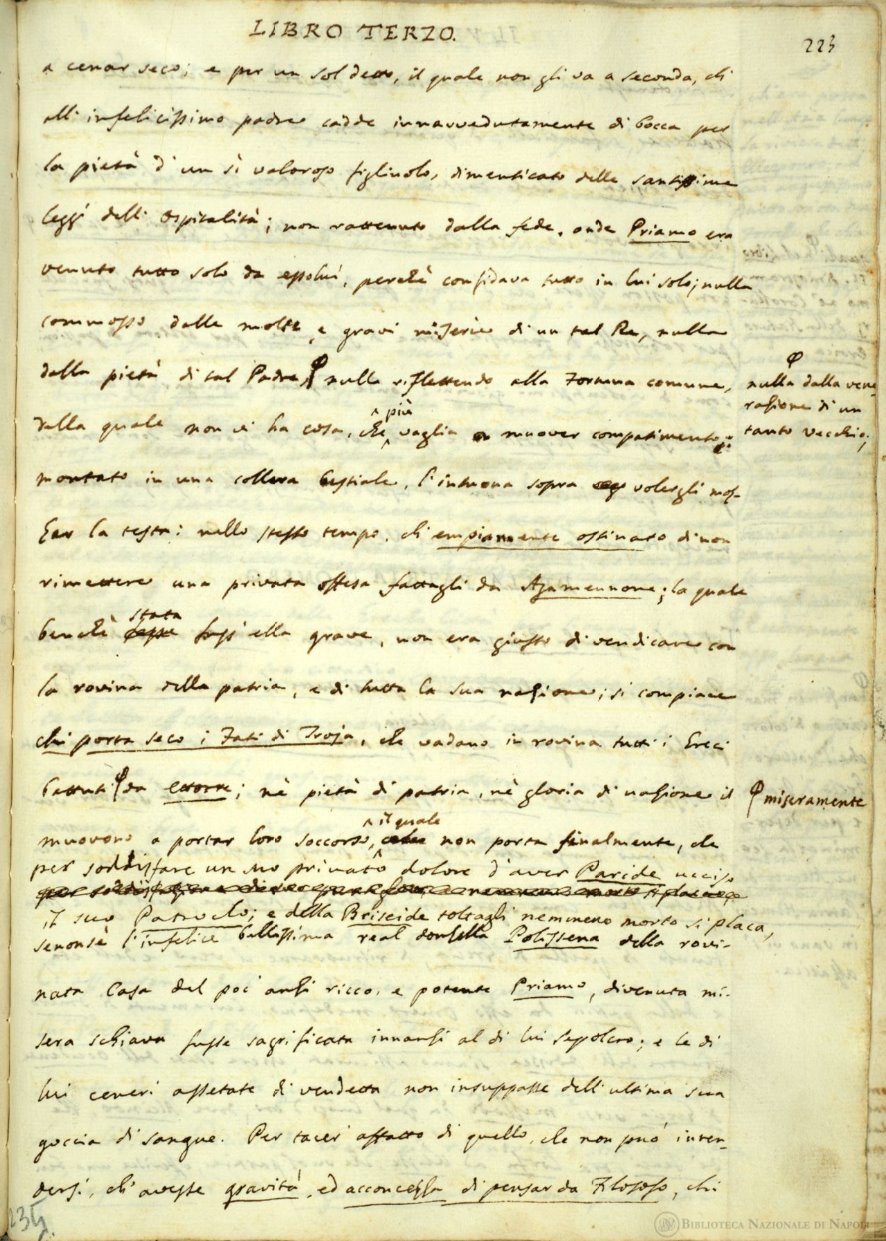 LIBRO TERZO.
223
a cenar seco; e per un sol detto, il quale non gli va a seconda, ch'
all' infelicissimo padre cadde innavvedutamente di bocca per
la pietà d' un sì valoroso figliuolo, dimenticato delle santissime
leggi dell' ospitalità; non rattenuto dalla fede, onde Priamo era
venuto tutto solo da essolui, perchè confidava tutto in lui solo; nulla
commosso dalle molte, e gravi miserie di un tal Re, nulla
dalla pietà di tal Padre, φ nulla riflettendo alla Fortuna comune,
φ nulla dalla vene-
razione di un
tanto vecchio;
dalla quale non vi ha cosa, che più vaglia a muover compatimento;
montato in una collera bestiale, l' intuona sopra volergli moz-
zar la testa: nello stesso tempo, ch' empiamente ostinato di non
rimettere una privata offesa fattagli da Agamennone; la quale
benchè stata fuss' ella grave, non era giusto di vendicare con
la rovina della patria, e di tutta la sua nazione; si compiace
chi porta seco i Fati di Troja, che vadano in rovina tutti i Greci
battuti φ da Ettorre; nè pietà di patria, nè gloria di nazione il
φ miseramente
muovono a portar loro soccorso, il quale non porta finalmente, che
per soddisfare un suo privato dolore d' aver Paride ucciso
il suo Patroclo; e della Briseide toltagli nemmeno morto si placa,
senonsè l' infelice bellissima real donzella Polissena della rovi-
nata Casa del poc' anzi ricco, e potente Priamo, divenuta mi-
sera schiava fusse sagrificata innanzi al di lui sepolcro; e le di
lui ceneri assetate di vendetta non insuppasse dell' ultima sua
goccia di sangue. Per tacer' affatto di quello, che non può inten-
dersi, ch' avesse gravità, ed acconcezza di pensar da Filosofo, chi
235
BIBLIOTECA NAZIONALE DI NAPOLI